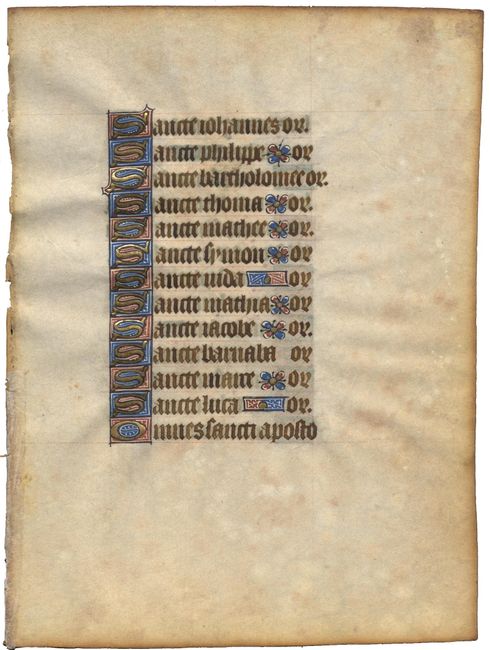 Sancte iohannes or.
Sancte philippe or
Sancte bartholomee or.
Sancte thoma or.
Sancte mathee or.
Sancte symon or
Sancte iuda or
Sancte mathia or
Sancte iacobe or.
Sancte barnaba or
Sancte marce or
Sancte luca or.
Omnes sancti aposto